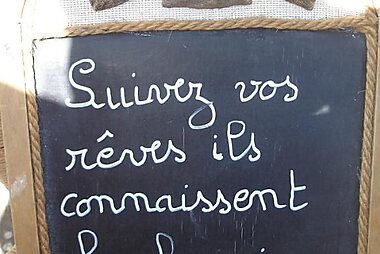 Suivez vos
rêves ils
connaissent